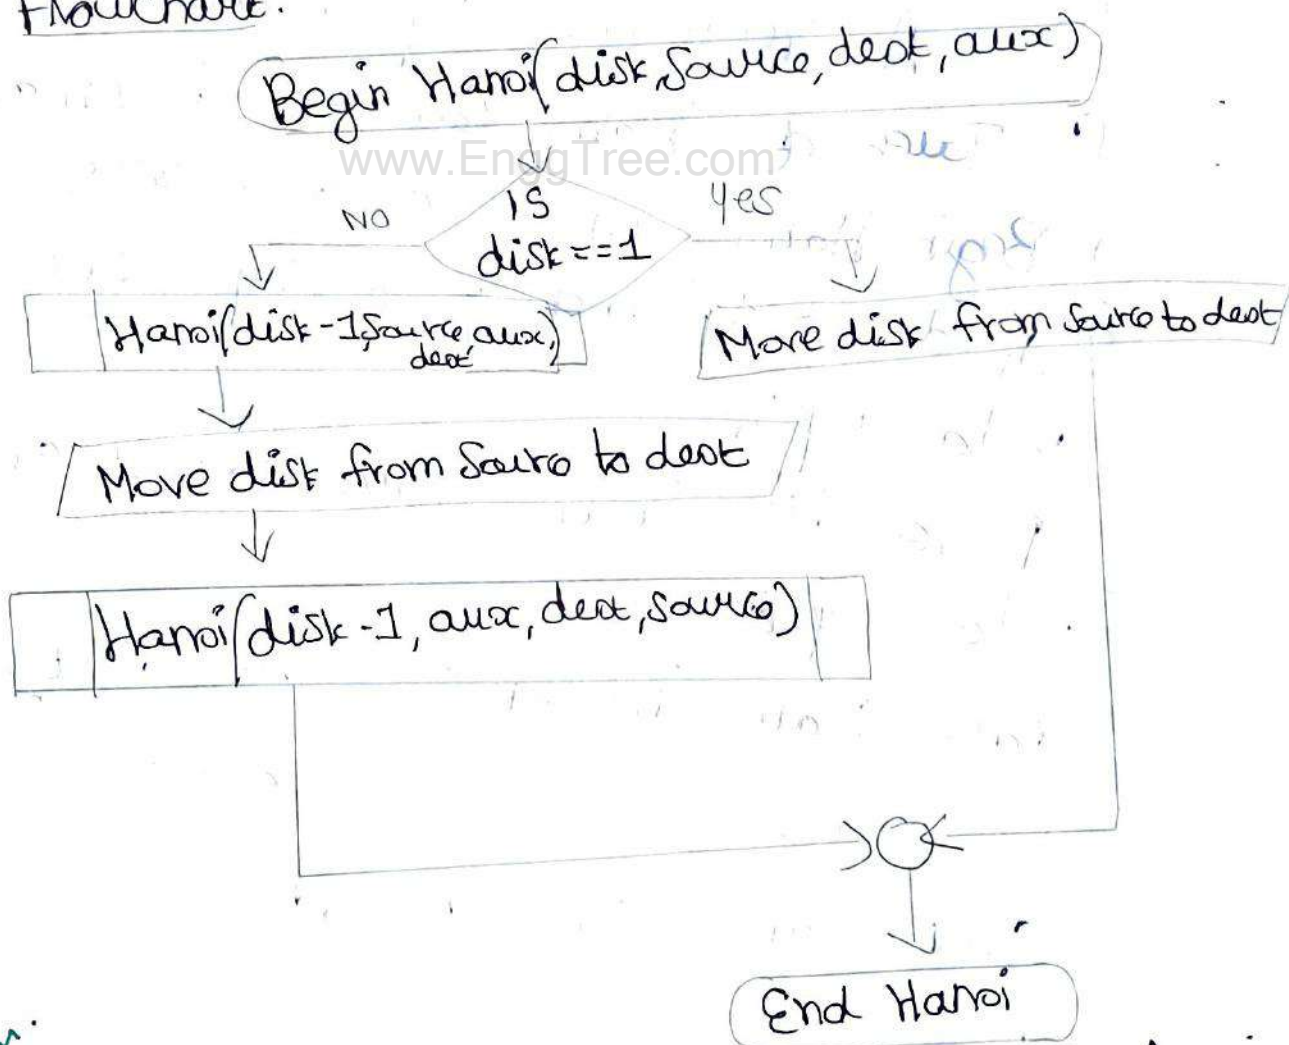 Flowchart:
Begin Hanoi(disk, Source, dest, aux)
www.EnggTree.com
IS
disk==1
NO
Yes
Hanoi(disk-1, Source, aux,
dest)
Move disk from Source to dest
Move disk from Source to dest
Hanoi(disk-1, aux, dest, source)
End Hanoi